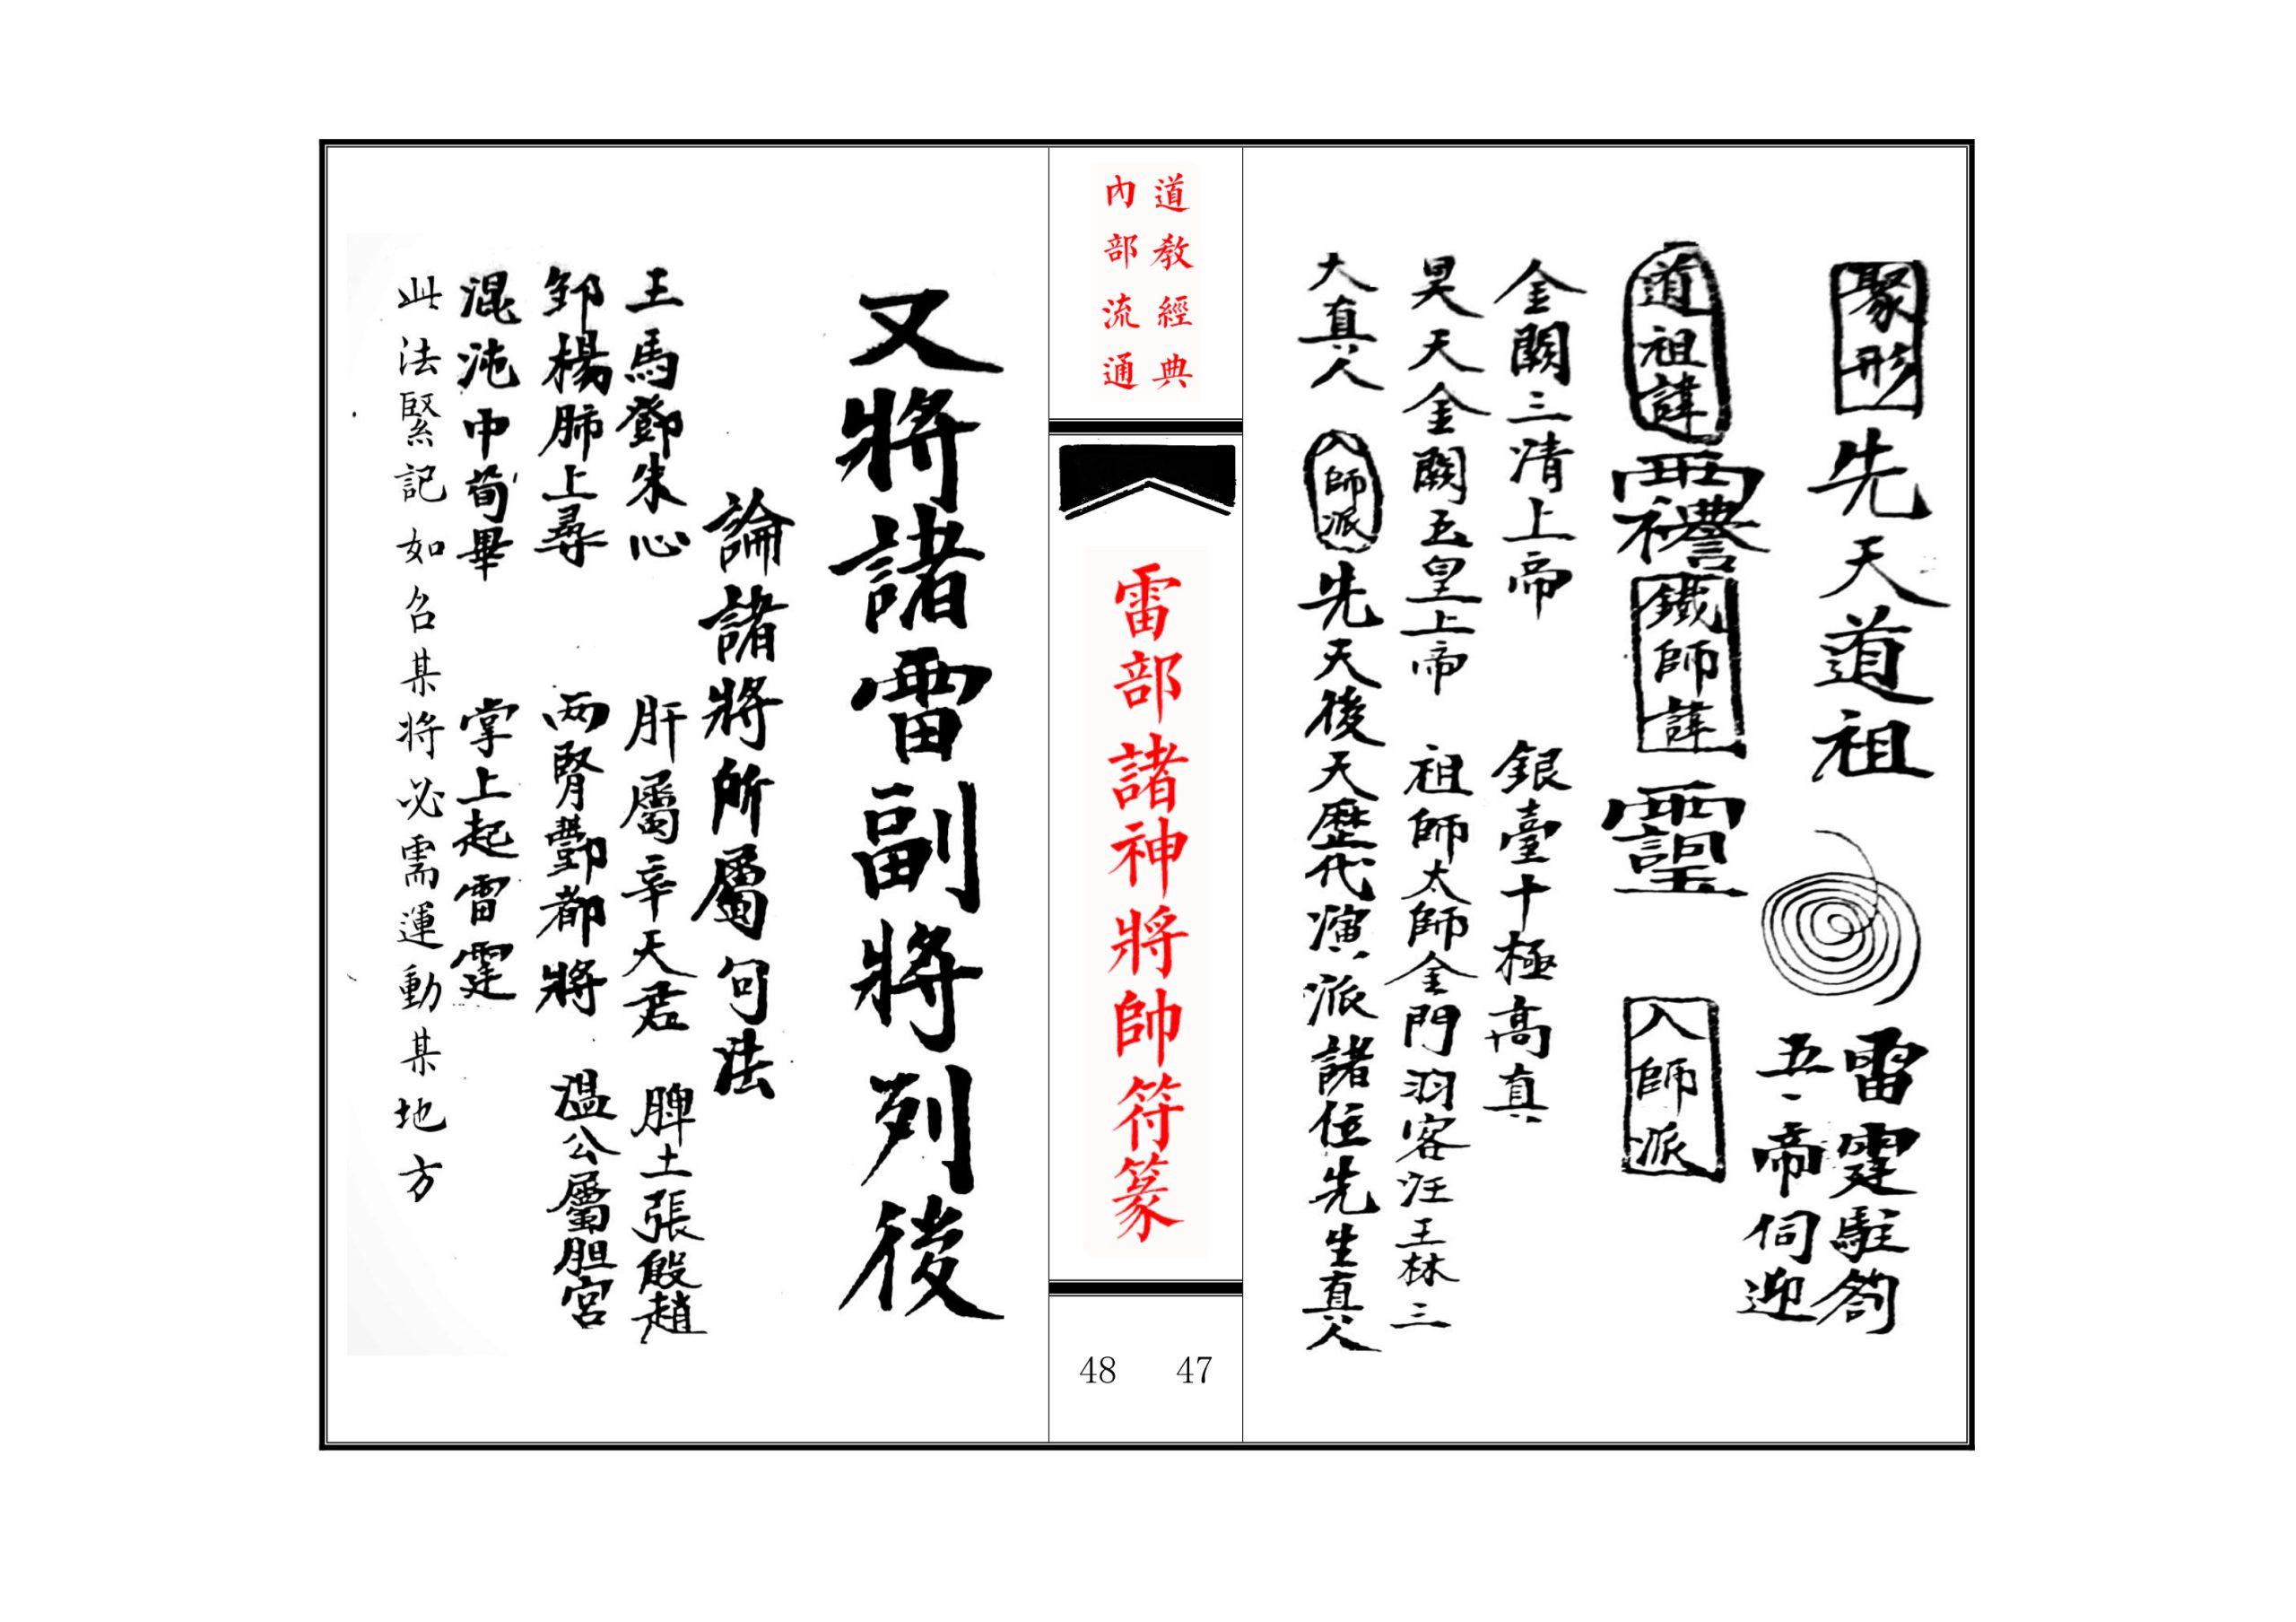 聚形 先天道祖
雷霆駐劄
五帝伺迎
道祖諱 鐵師諱 入師派
金闕三清上帝 銀臺十極高真
昊天金闕玉皇上帝 祖師太師金門羽客汪王林三
大真人 入師派 先天後天歷代演派諸位先生真人
道教經典
內部流通
雷部諸神將帥符篆
47
48
又將諸雷副將列後
論諸將所屬句法
王馬鄧朱心 肝屬辛天君 脾土張殷趙
鄒楊肺上尋 兩腎酆都將 溫公屬胆宮
混沌中荀畢 掌上起雷霆
此法緊記如名某将必需運動某地方